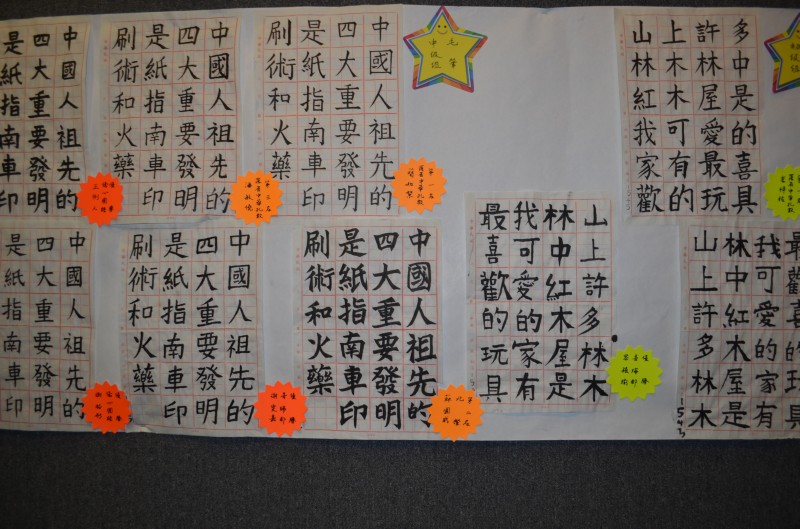 中國人祖先的
四大重要發明
是紙指南車印
中國人祖先的
四大重要發明
是紙指南車印
刷術和火藥
中國人祖先的
四大重要發明
是紙指南車印
刷術和火藥
第一名
毛筆
中級組
山上許多
林木林中
紅木屋是
我可愛的
家有最喜
歡的玩具
中國人祖先的
四大重要發明
是紙指南車印
中國人祖先的
四大重要發明
是紙指南車印
刷術和火藥
中國人祖先的
四大重要發明
是紙指南車印
刷術和火藥
第二名
山上許多林木
林中紅木屋是
我可愛的家有
最喜歡的玩具
山上許多林木
林中紅木屋是
我可愛的家有
最喜歡的玩具